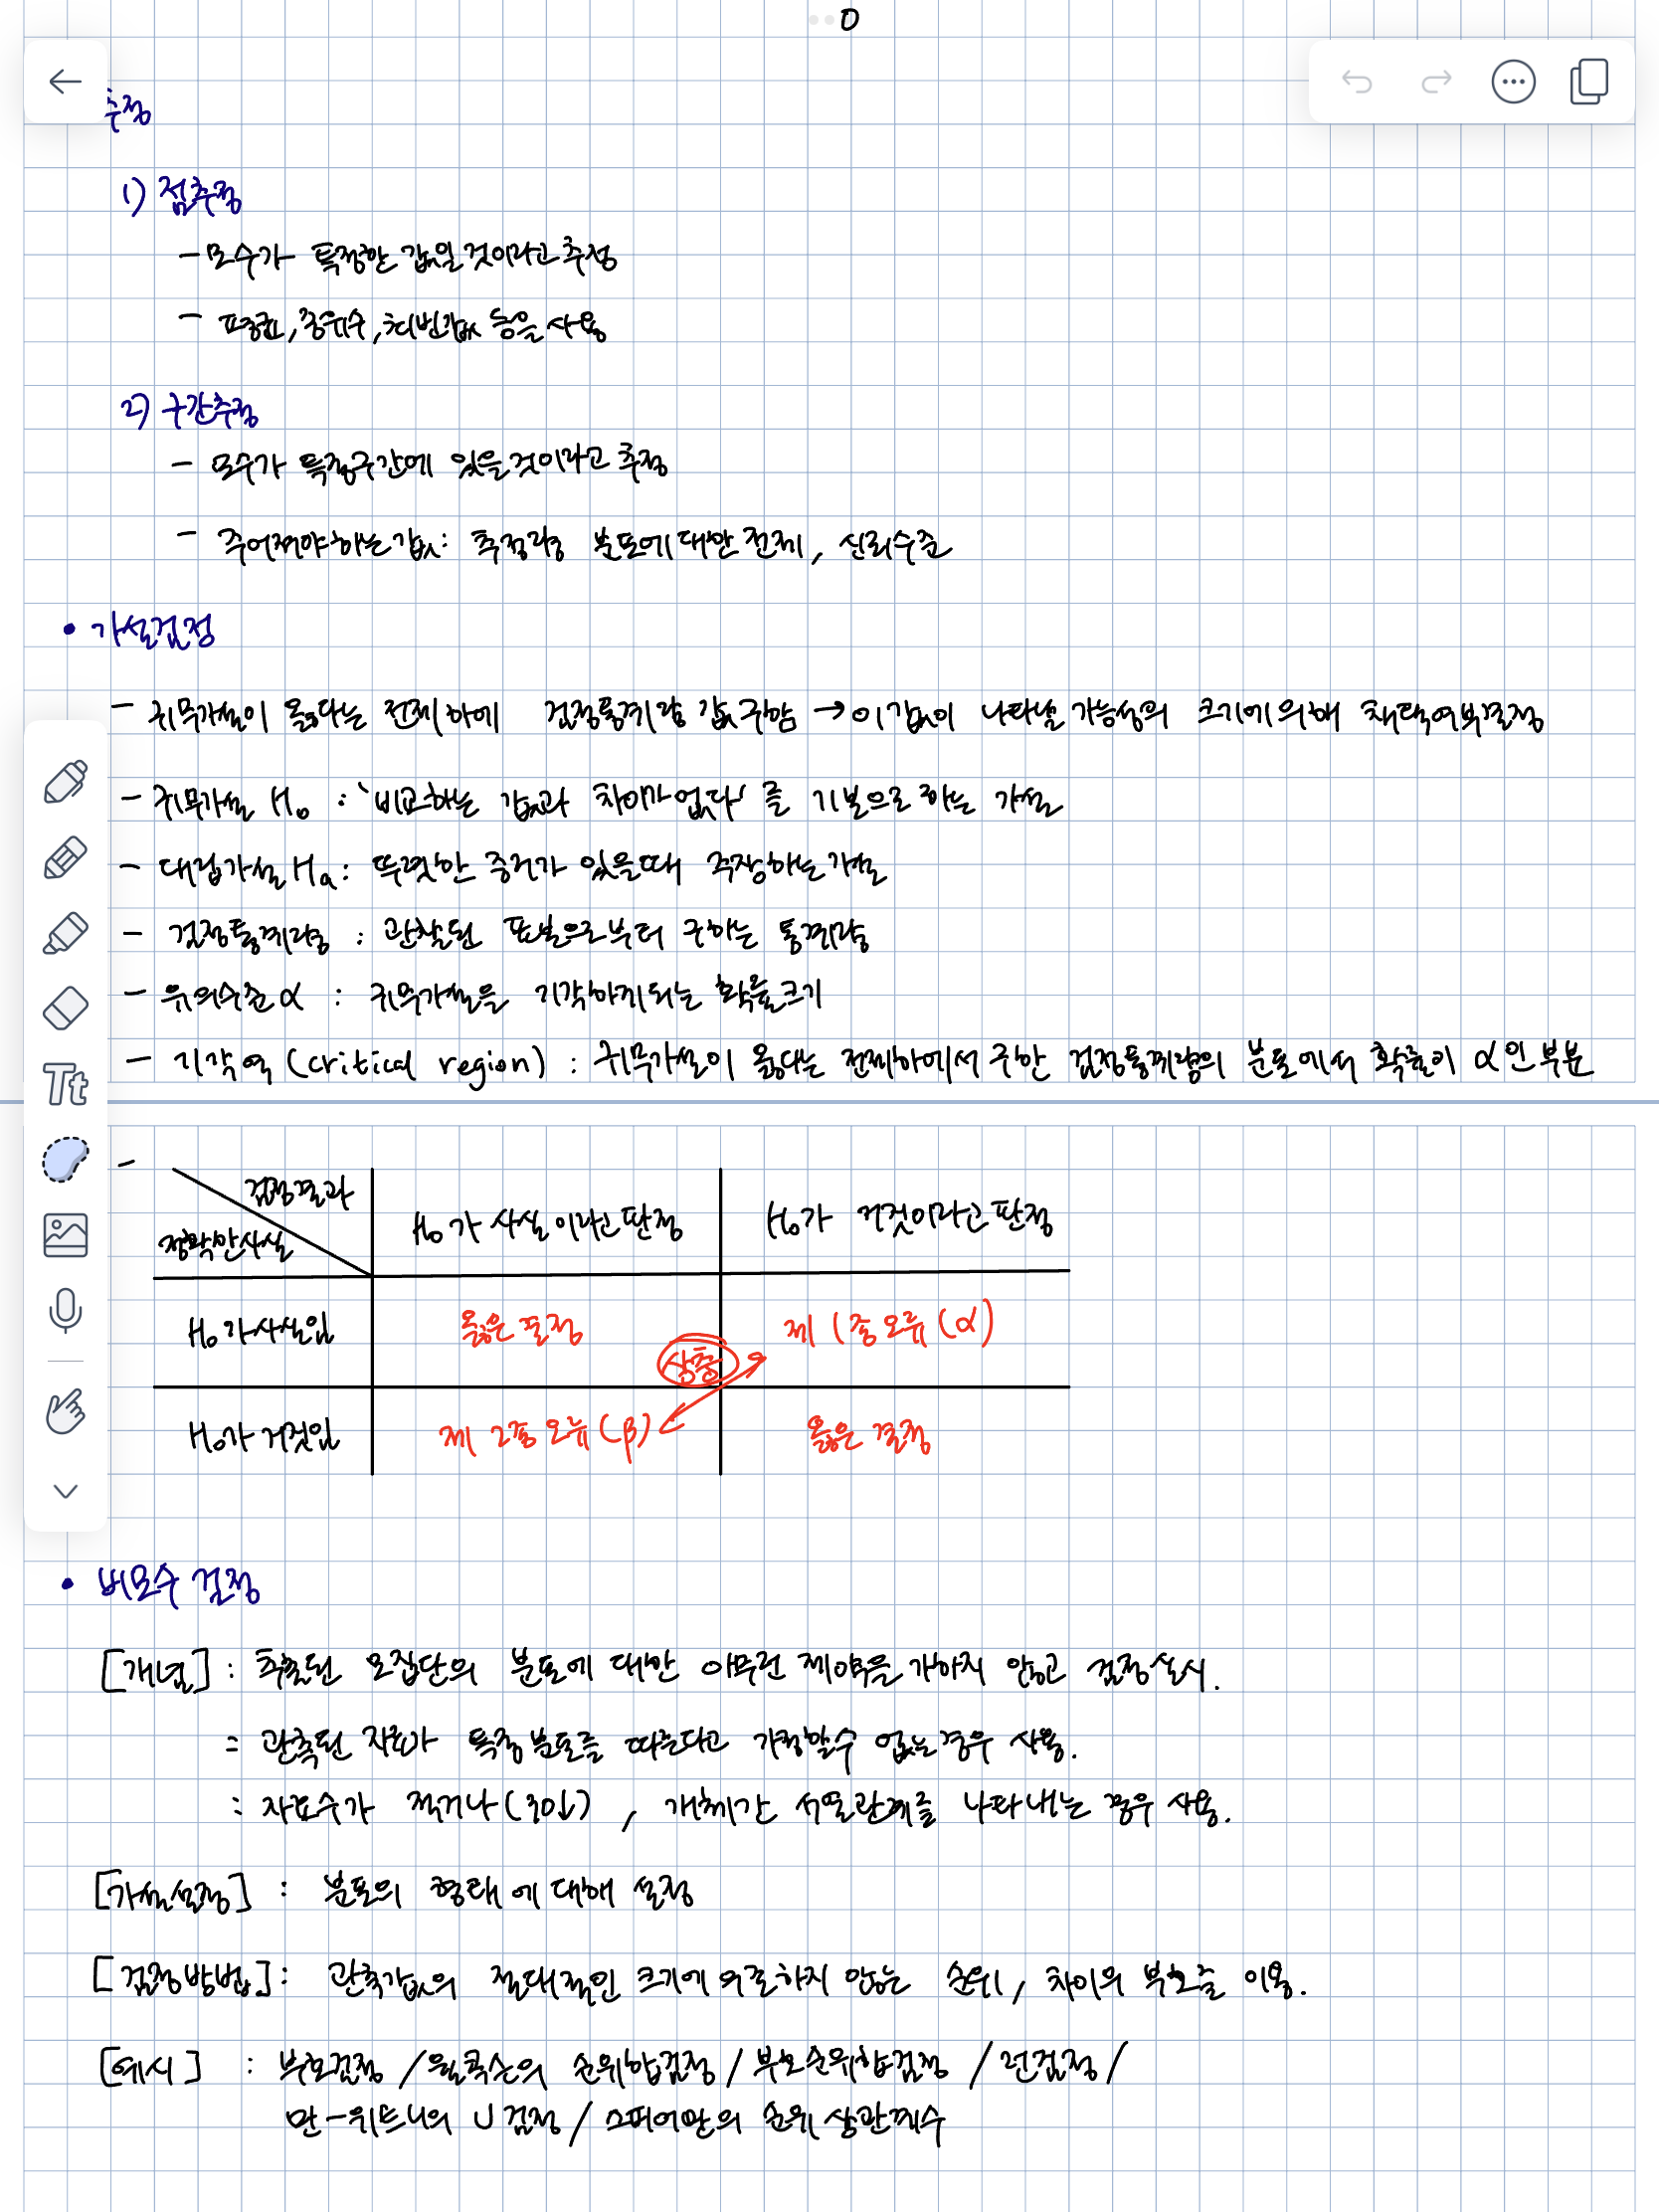 추정
1) 점추정
- 모수가 특정한 값일 것이라고 추정
- 평균, 중위수, 최빈값 등을 사용
2) 구간추정
- 모수가 특정구간에 있을 것이라고 추정
- 주어져야하는값: 추정량 분포에 대한 전제, 신뢰수준
• 가설검정
- 귀무가설이 옳다는 전제하에 검정통계량 값 구함 → 이 값이 나타날 가능성의 크기에 의해 채택여부결정
- 귀무가설 H₀ : '비교하는 값과 차이가 없다'를 기본으로 하는 가설
- 대립가설 Hₐ : 뚜렷한 증거가 있을때 주장하는 가설
- 검정통계량 : 관찰된 표본으로부터 구하는 통계량
- 유의수준 α : 귀무가설을 기각하게되는 확률크기
- 기각역 (critical region) : 귀무가설이 옳다는 전제하에서 구한 검정통계량의 분포에서 확률이 α인 부분
-
검정결과
정확한사실
H₀가 사실이라고 판정
H₀가 거짓이라고 판정
H₀가 사실임
옳은 결정
제 1종 오류 (α)
상충
H₀가 거짓임
제 2종 오류 (β)
옳은 결정
• 비모수 검정
[개념] : 추출된 모집단의 분포에 대한 아무런 제약을 가하지 않고 검정실시.
= 관측된 자료가 특정 분포를 따른다고 가정할수 없는 경우 사용.
: 자료수가 적거나(30↓), 개체간 서열관계를 나타내는 경우 사용.
[가설설정] : 분포의 형태에 대해 설정
[검정방법] : 관측값의 절대적인 크기에 의존하지 않는 순위, 차이의 부호를 이용.
[예시] : 부호검정 / 윌콕슨의 순위합검정 / 부호순위합검정 / 런검정 /
만-위트니의 U검정 / 스피어만의 순위 상관계수
Tt